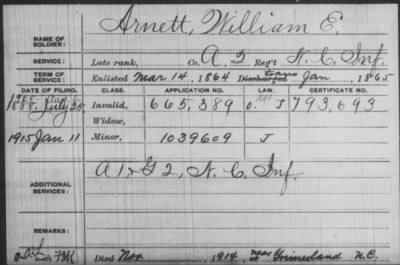 NAME OF SOLDIER: Arnett, William E.
SERVICE: Late rank, Co. A, 2 Reg't N. C. Inf.
TERM OF SERVICE: Enlisted Mar 14, 1864 Discharged trans Jan , 1865
DATE OF FILING. CLASS. APPLICATION NO. LAW. CERTIFICATE NO.
188 July Invalid, 665,389 J 793,693
Widow,
1915 Jan 11 Minor, 1039609 J
ADDITIONAL SERVICES: A 1 & G 2, N. C. Inf.
REMARKS:
Died Nov 1914, near at Grimesland N.C.